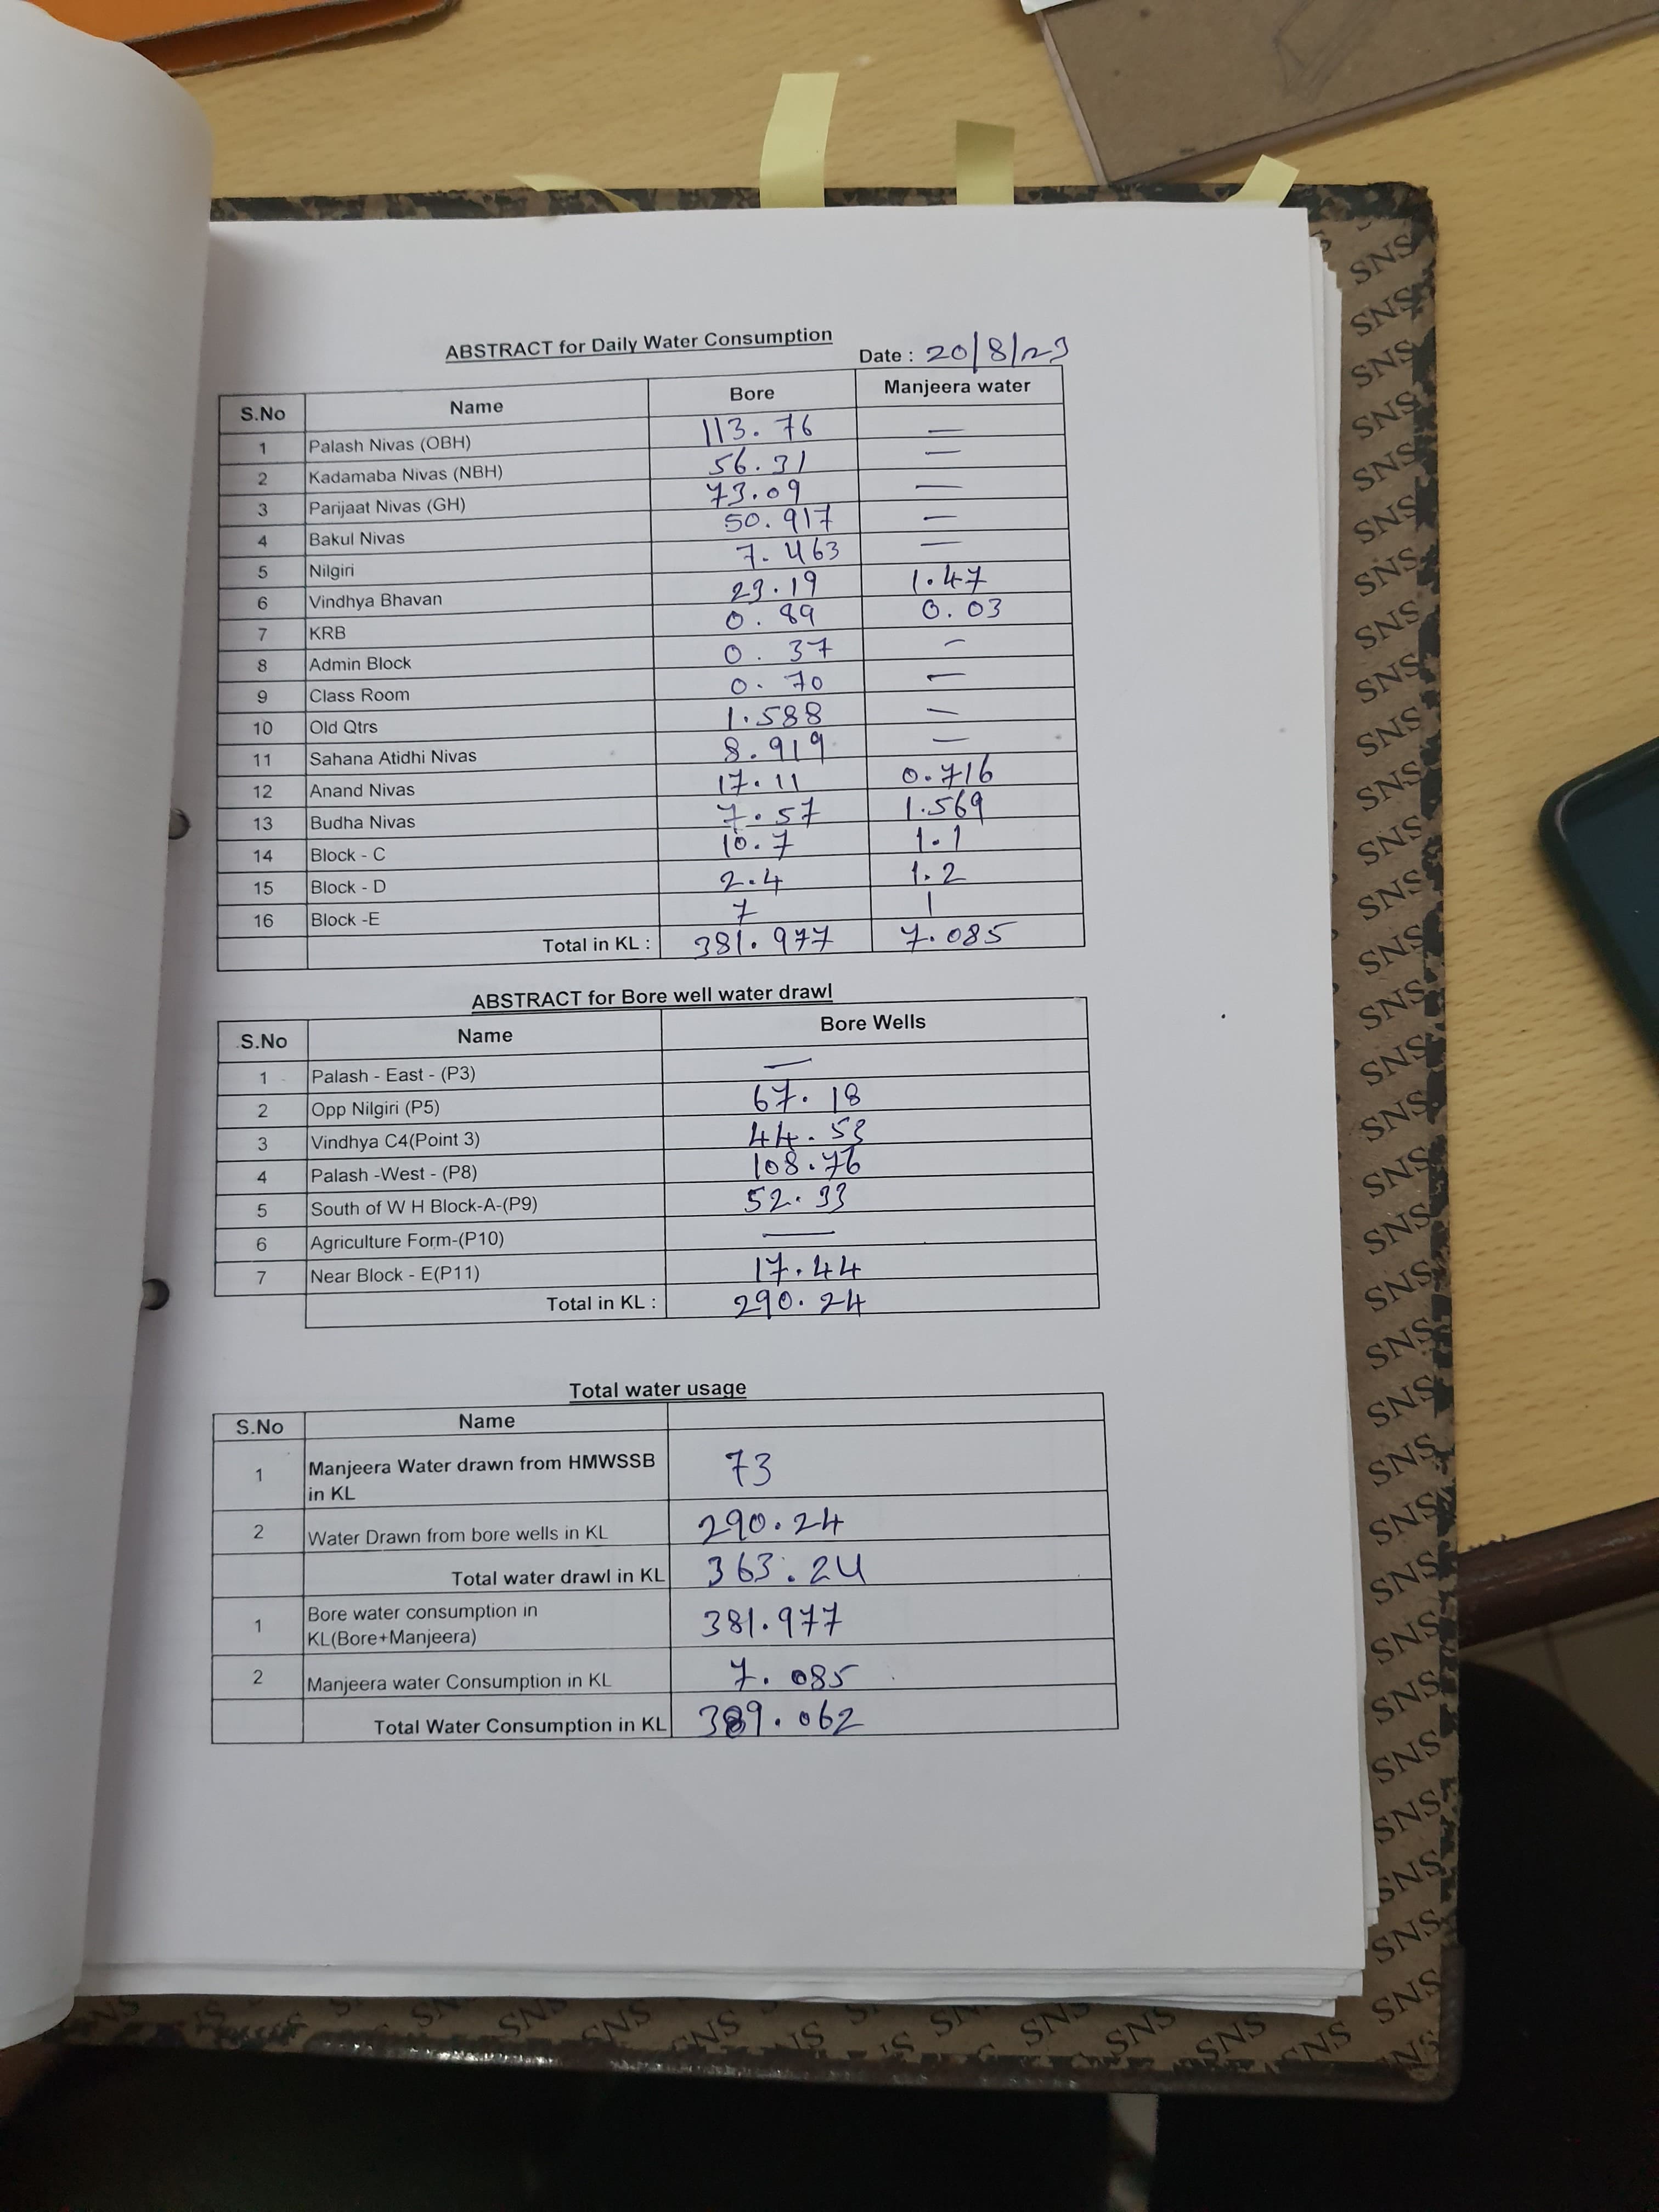 ABSTRACT for Daily Water Consumption
Date : 20/8/23
S.No Name Bore Manjeera water
1 Palash Nivas (OBH) 113.76 —
2 Kadamaba Nivas (NBH) 56.31 —
3 Parijaat Nivas (GH) 73.09 —
4 Bakul Nivas 50.917 —
5 Nilgiri 7.463 —
6 Vindhya Bhavan 23.19 1.47
7 KRB 0.89 0.03
8 Admin Block 0.37 —
9 Class Room 0.70 —
10 Old Qtrs 1.588 —
11 Sahana Atidhi Nivas 8.919 —
12 Anand Nivas 17.11 0.716
13 Budha Nivas 7.57 1.569
14 Block - C 10.7 1.1
15 Block - D 2.4 1.2
16 Block -E 7 1
Total in KL : 381.977 7.085
ABSTRACT for Bore well water drawl
S.No Name Bore Wells
1 Palash - East - (P3) —
2 Opp Nilgiri (P5) 67.18
3 Vindhya C4(Point 3) 44.53
4 Palash -West - (P8) 108.76
5 South of W H Block-A-(P9) 52.33
6 Agriculture Form-(P10) —
7 Near Block - E(P11) 17.44
Total in KL : 290.24
Total water usage
S.No Name
1 Manjeera Water drawn from HMWSSB in KL 73
2 Water Drawn from bore wells in KL 290.24
Total water drawl in KL 363.24
1 Bore water consumption in KL(Bore+Manjeera) 381.977
2 Manjeera water Consumption in KL 7.085
Total Water Consumption in KL 389.062